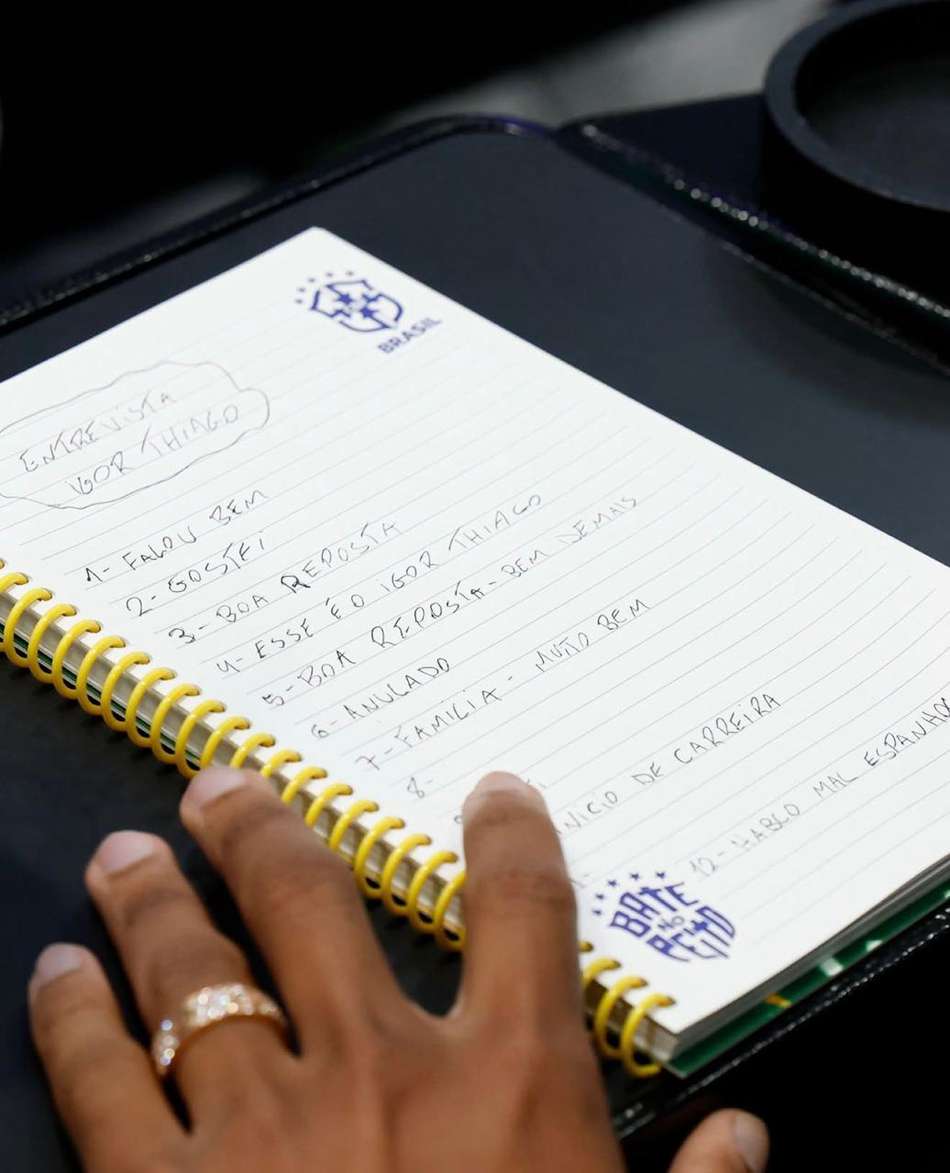 BRASIL
ENTREVISTA
IGOR THIAGO
1- FALOU BEM
2- GOSTEI
3- BOA REPOSTA
4- ESSE É O IGOR THIAGO
5- BOA REPOSTA - BEM DEMAIS
6- ANULADO
7- FAMILIA - MUITO BEM
8-
INICIO DE CARREIRA
12- HABLO MAL ESPANHOL
BATE
NO
PEITO